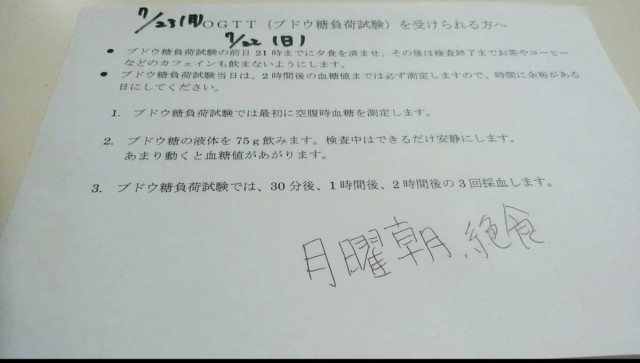 7/23(月)OGTT(ブドウ糖負荷試験)を受けられる方へ
7/22(日)
● ブドウ糖負荷試験の前日 21 時までに夕食を済ませ、その後は検査終了までお茶やコーヒー
などのカフェインも飲まないようにします。
● ブドウ糖負荷試験当日は、2 時間後の血糖値までは必ず測定しますので、時間に余裕がある
日にしてください。
1. ブドウ糖負荷試験では最初に空腹時血糖を測定します。
2. ブドウ糖の液体を 75g飲みます。検査中はできるだけ安静にします。
あまり動くと血糖値があがります。
3. ブドウ糖負荷試験では、30 分後、1 時間後、2 時間後の 3 回採血します。
月曜朝、絶食